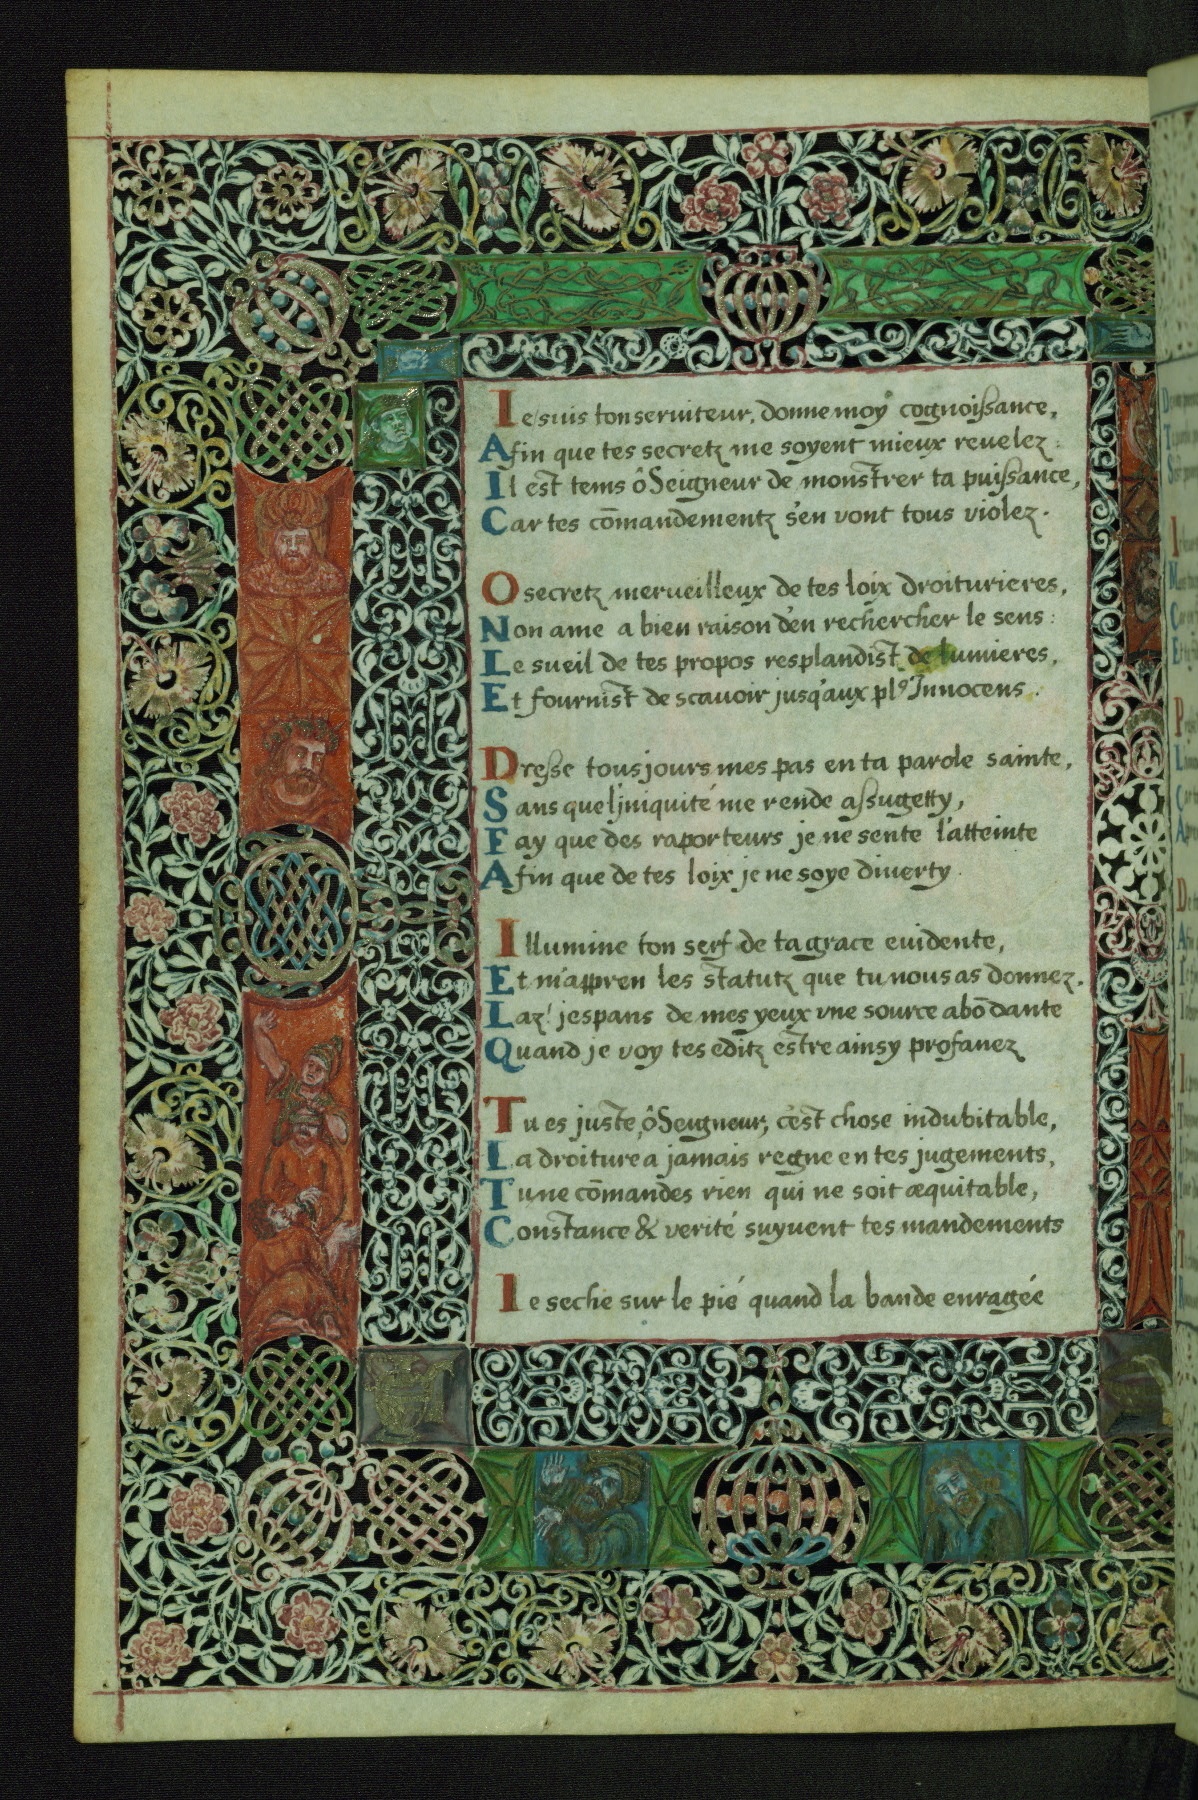 Ie suis ton seruiteur, donne moy cognoissance,
Afin que tes secretz me soyent mieux reuelez:
Il est tems ô Seigneur de monstrer ta puissance,
Car tes cōmandementz s'en vont tous violez.
O secretz merueilleux de tes loix droiturieres,
Non ame a bien raison d'en rechercher le sens:
Le sueil de tes propos resplandist de lumieres,
Et fournist de scauoir jusq'aux plꝰ Innocens.
Dresse tousjours mes pas en ta parole sainte,
Sans quel'iniquité me rende assugetty,
Fay que des raporteurs je ne sente l'atteinte
Afin que de tes loix je ne soye diuerty.
Illumine ton serf de ta grace euidente,
Et m'appren les statutz que tu nous as donnez.
Laz! jespans de mes yeux vne source abōdante
Quand je voy tes editz estre ainsy profanez
Tu es juste, ô Seugneur, c'est chose indubitable,
La droiture a jamais regne en tes jugements,
Tu ne cōmandes rien qui ne soit æquitable,
Constance & verité suyuent tes mandements
Ie seche sur le pié quand la bande enragée